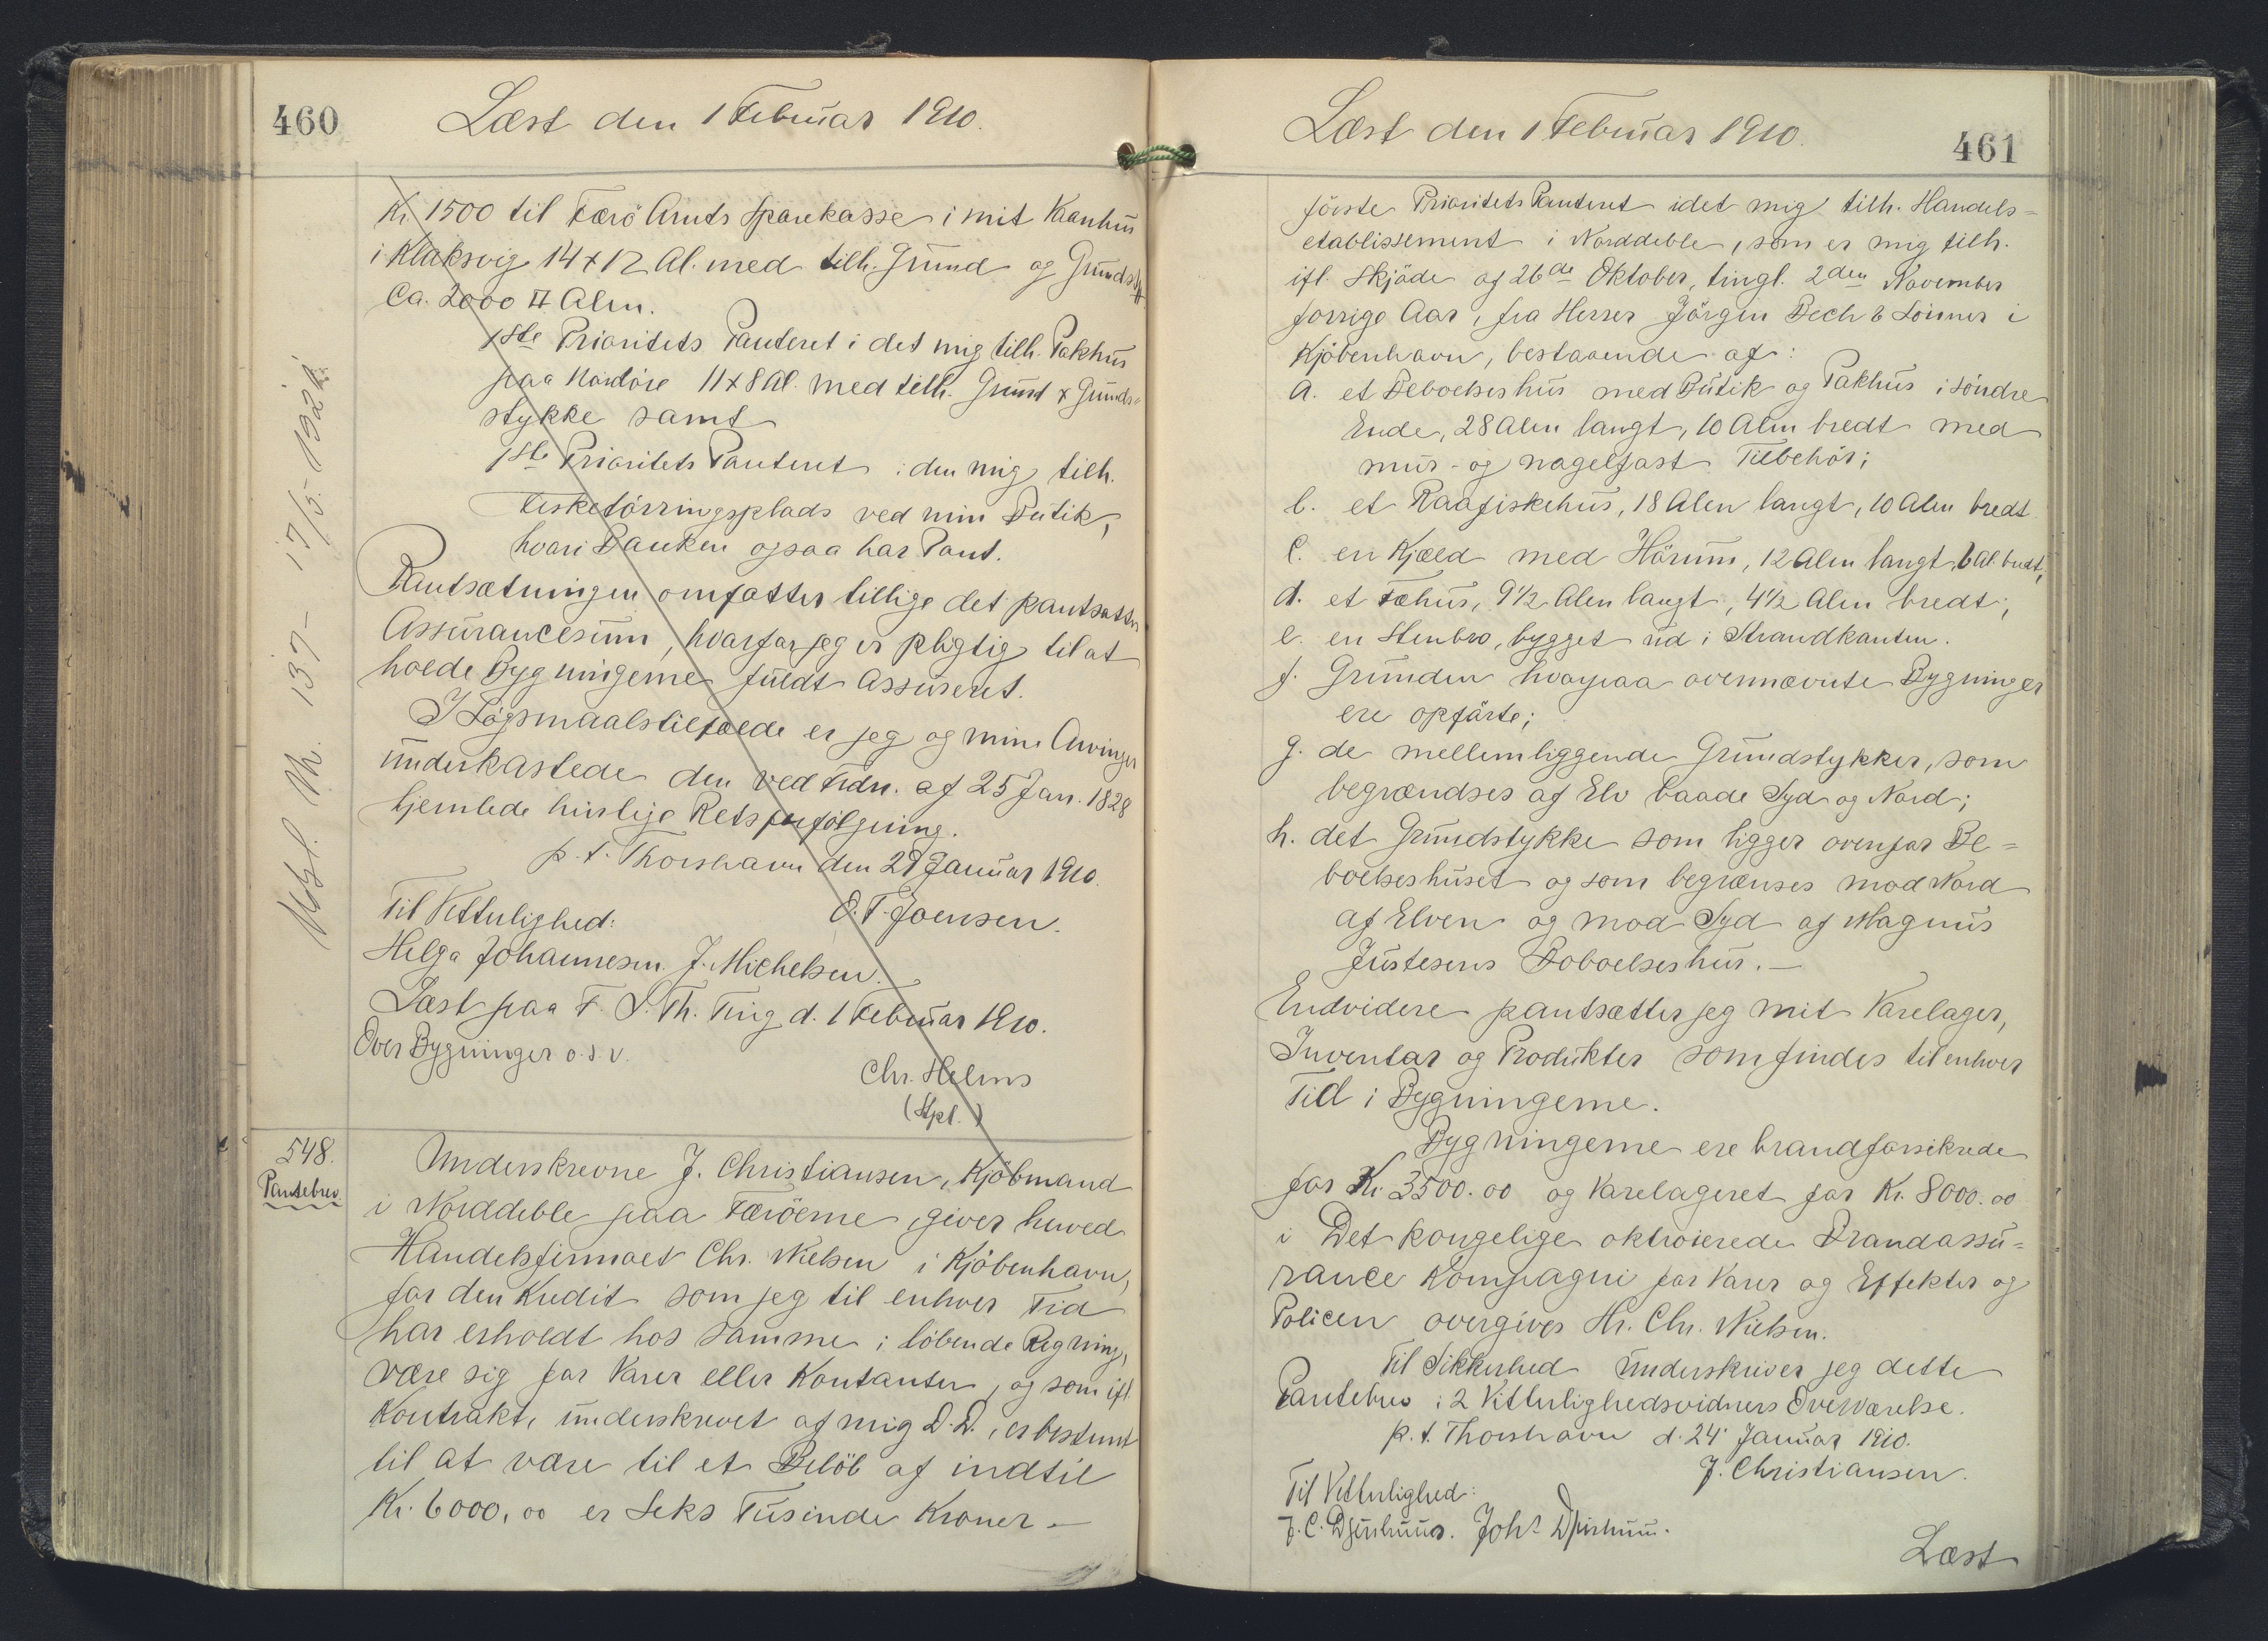 460
Læst den 1 Februar 1910.
Kr. 1500 til Færö Amts Sparekasse i mit Vaanhus
i Klaksvig 14 x 12 Al. med tilh. Grund og Grundst.
Ca. 2000 □ Alen.
1ste Prioritets Panteret i det mig tilh. Pakhus
paa Nordöre 11 x 8 Al. med tilh. Grund & Grund-
stykke samt
1ste Prioritets Panteret i den mig tilh.
Fisketörringsplads ved min Butik,
hvori Banken ogsaa har Pant.
Pantsætningen omfatter tillige det pantsatte
Assurancesum, hvorfor jeg er pligtig til at
holde Bygningerne fuldt Assureret.
I Lögsmaalstilfælde er jeg og mine Arvinger
underkastede den ved Frdn. af 25 Jan. 1828
hjemlede hurtige Retsforfölgning.
p. t. Thorshavn den 29 Januar 1910.
O. T. Joensen.
Til Vitterlighed:
Helga Johannesen. J. Michelsen.
Læst paa F. S. Th. Ting d. 1 Februar 1910.
Over Bygninger o.s.v.
Chr. Helms
(Stpl.)
137 - 17/5. 1921.
548.
Pantebrev.
Underskrevne J. Christiansen, Kjöbmand
i Norddeble paa Færöerne, giver herved
Handelsfirmaet Chr. Nielsen i Kjöbenhavn,
for den Kredit som jeg til enhver Tid
har erholdt hos samme i löbende Regning,
være sig for Varer eller Kontanter, og som ifl.
Kontrakt, underskrevet af mig D. D., er bestemt
til at være til et Belöb af indtil
Kr. 6000,00 er Seks Tusinde Kroner –
Læst den 1 Februar 1910.
461
förste Prioritets Panteret i det mig tilh. Handels-
etablissement i Norddeble, som er mig tilh.
ifl. Skjöde af 26de Oktober, tingl. 2den November
forrige Aar, fra Herrer Jörgen Bech & Sönner i
Kjöbenhavn, bestaaende af:
a. et Beboelseshus med Butik og Pakhus i söndre
Ende, 28 Alen langt, 10 Alen bredt med
mur- og nagelfast Tilbehör;
b. et Raafiskehus, 18 Alen langt, 10 Alen bredt
c. en Kjæld med Hörum, 12 Alen langt, 6 Al. bredt,
d. et Fæhus, 9½ Alen langt, 4½ Alen bredt;
e. en Stenbro, bygget ud i Strandkanten.
f. Grunden hvorpaa ovennævnte Bygninger
ere opförte;
g. de mellemliggende Grundstykker, som
begrændses af Elv baade Syd og Nord;
h. det Grundstykke som ligger ovenfor Be-
boelseshuset og som begrænses mod Nord
af Elven og mod Syd af Magnus
Justesens Boboelseshus. –
Endvidere pantsætter jeg mit Varelager,
Inventar og Produkter som findes til enhver
Tid i Bygningerne.
Bygningerne ere brandforsikrede
for Kr. 3500.00 og Varelageret for Kr. 8000.00
i Det kongelige oktroierede Brandassu-
rance Kompagni for Varer og Effekter og
Policen overgives Hr. Chr. Nielsen.
Til Sikkerhed underskriver jeg dette
Pantebrev i 2 Vitterlighedsvidners Overværelse.
p. t. Thorshavn d. 24 Januar 1910.
J. Christiansen.
Til Vitterlighed:
J. C. Djurhuus. Johs Djurhuus.
Læst